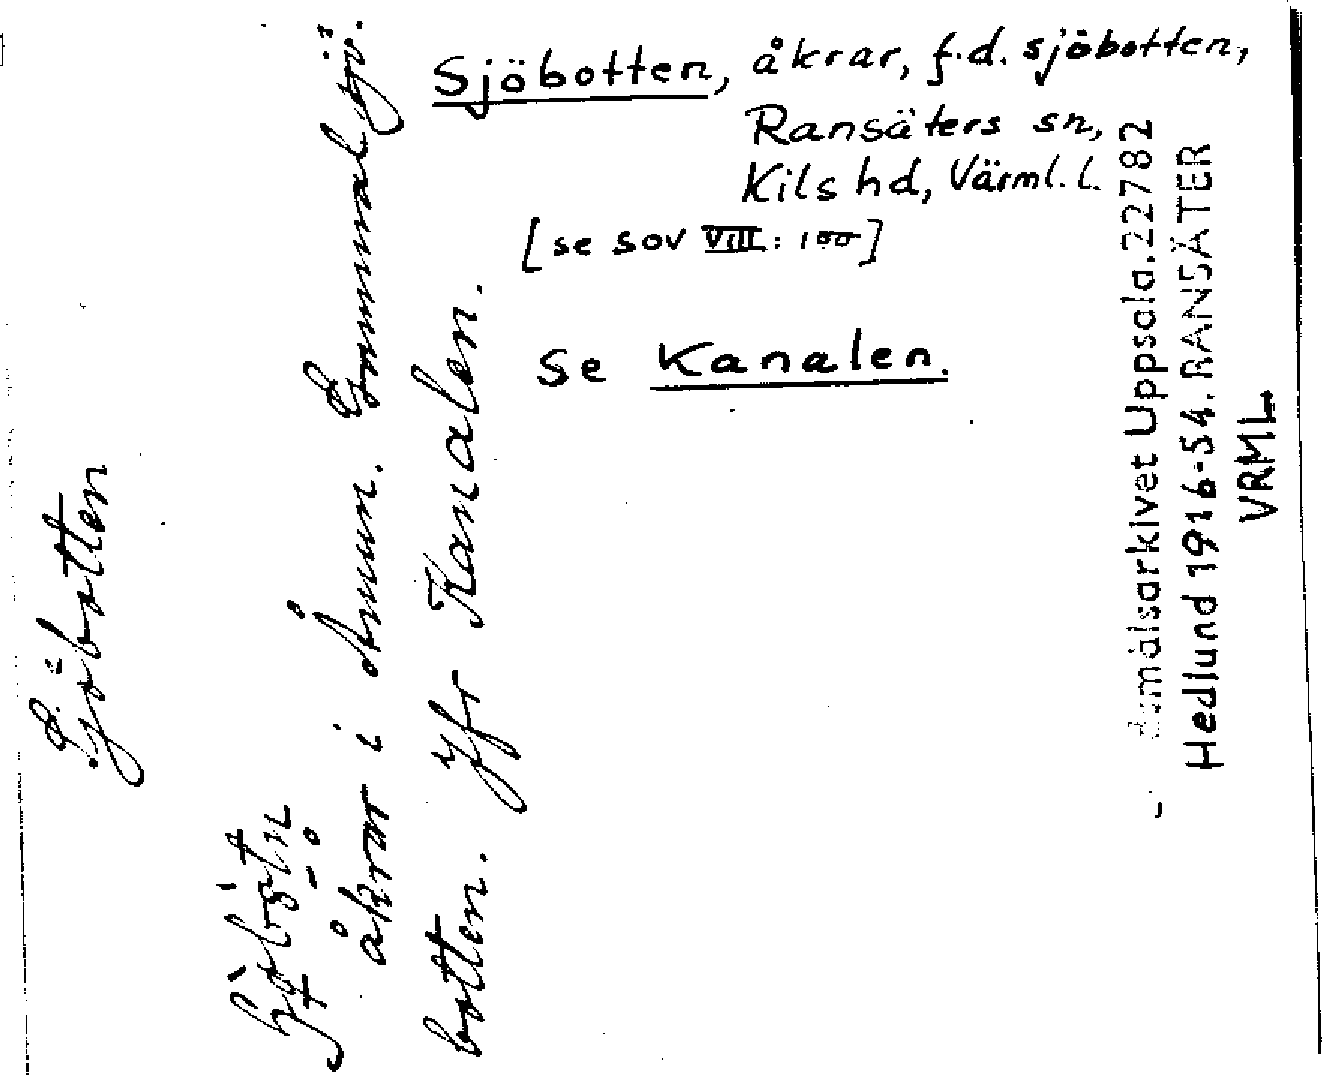 Sjöbotten, åkrar, f.d. sjöbotten,
Ransäters sn,
Kils hd, Värml. l.
[se SOV VIII: 100]
Se Kanalen.
Sjöbotten
åkrar i Åmun. Gammal sjö-
botten. Jfr Kanalen.
målsarkivet Uppsala. 22782
Hedlund 1916-54. RANSÄTER
VRML